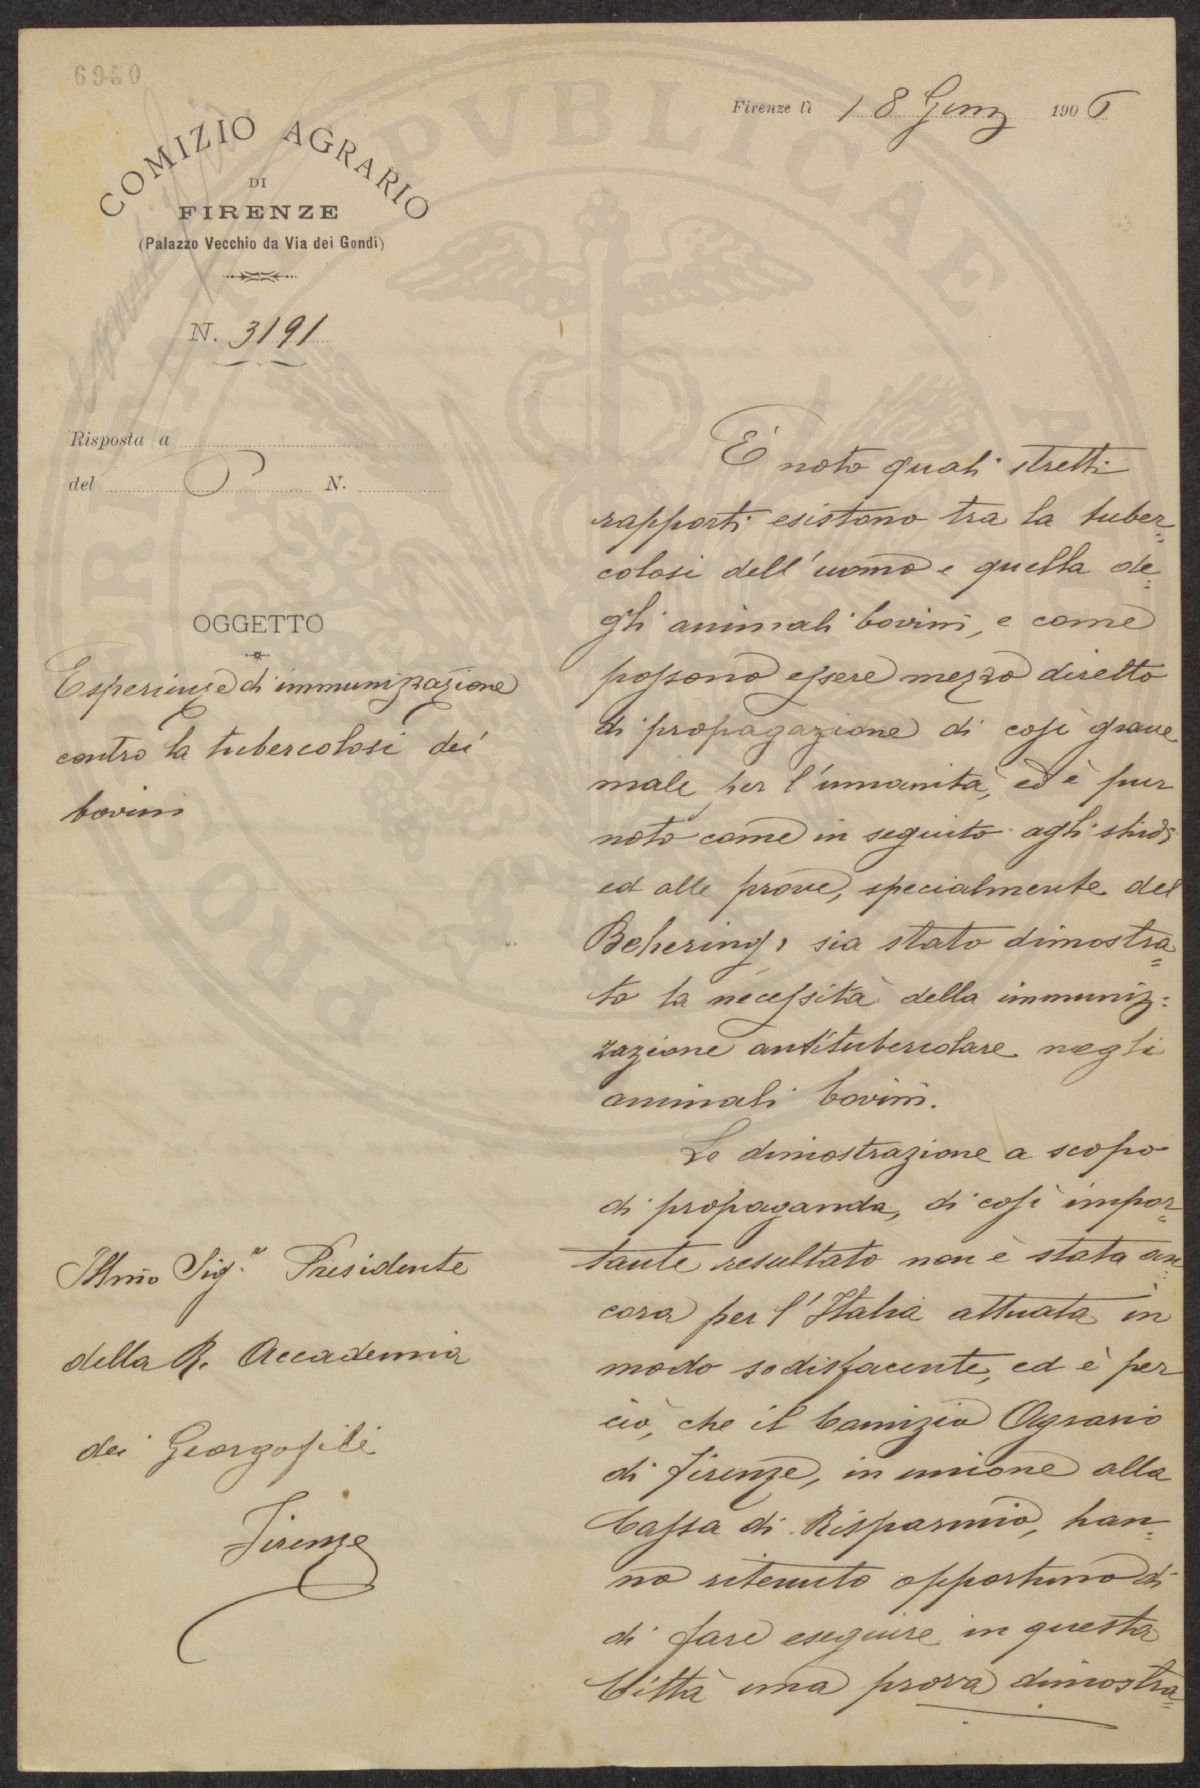 6950
Firenze lì 18 Genn 1906
COMIZIO AGRARIO
DI
FIRENZE
(Palazzo Vecchio da Via dei Gondi)
N. 3191
Risposta a
del N.
OGGETTO
Esperienze di immunizzazione
contro la tubercolosi dei
bovini
Illmo Sig.r Presidente
della R. Accademia
dei Georgofili
Firenze
È noto quali stretti
rapporti esistono tra la tuber=
colosi dell'uomo e quella de=
gli animali bovini, e come
possono essere mezzo diretto
di propagazione di così grave
male per l'umanità, ed è pur
noto come in seguito agli studi
ed alle prove, specialmente del
Behering, sia stato dimostra=
to la necessità della immuniz=
zazione antitubercolare negli
animali bovini.
La dimostrazione a scopo
di propaganda, di così impor=
tante resultato non è stata an=
cora per l'Italia attuata in
modo sodisfacente, ed è per
ciò, che il Comizio Agrario
di Firenze, in unione alla
Cassa di Risparmio, han=
no ritenuto opportuno di
di fare eseguire in questa
Città una prova dimostra=